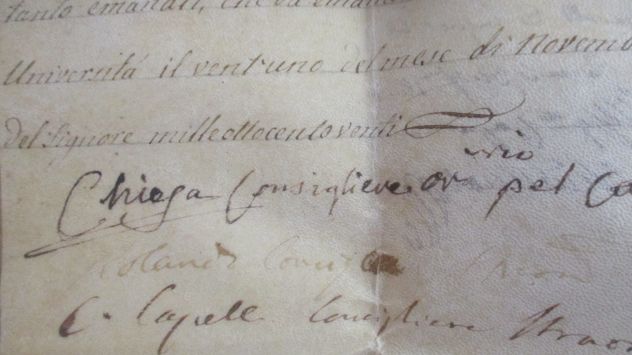 tanto emanati, che da
Università il ventuno del mese di Novem
del Signore milleottocentoventi
Chiesa Consigliere or.rio pel
C. Capell Consigliere Straor